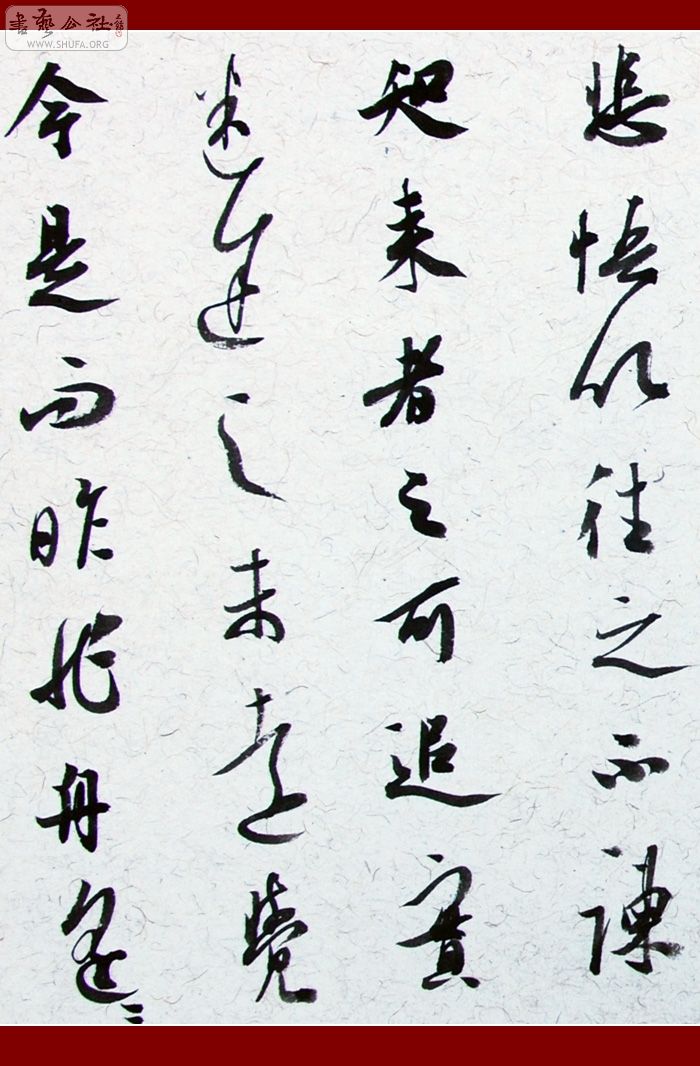 書藝公社
WWW.SHUFA.ORG
悲悟以往之不諫
知来者之可追實
迷途之未遠覺
今是而昨非舟遥〻